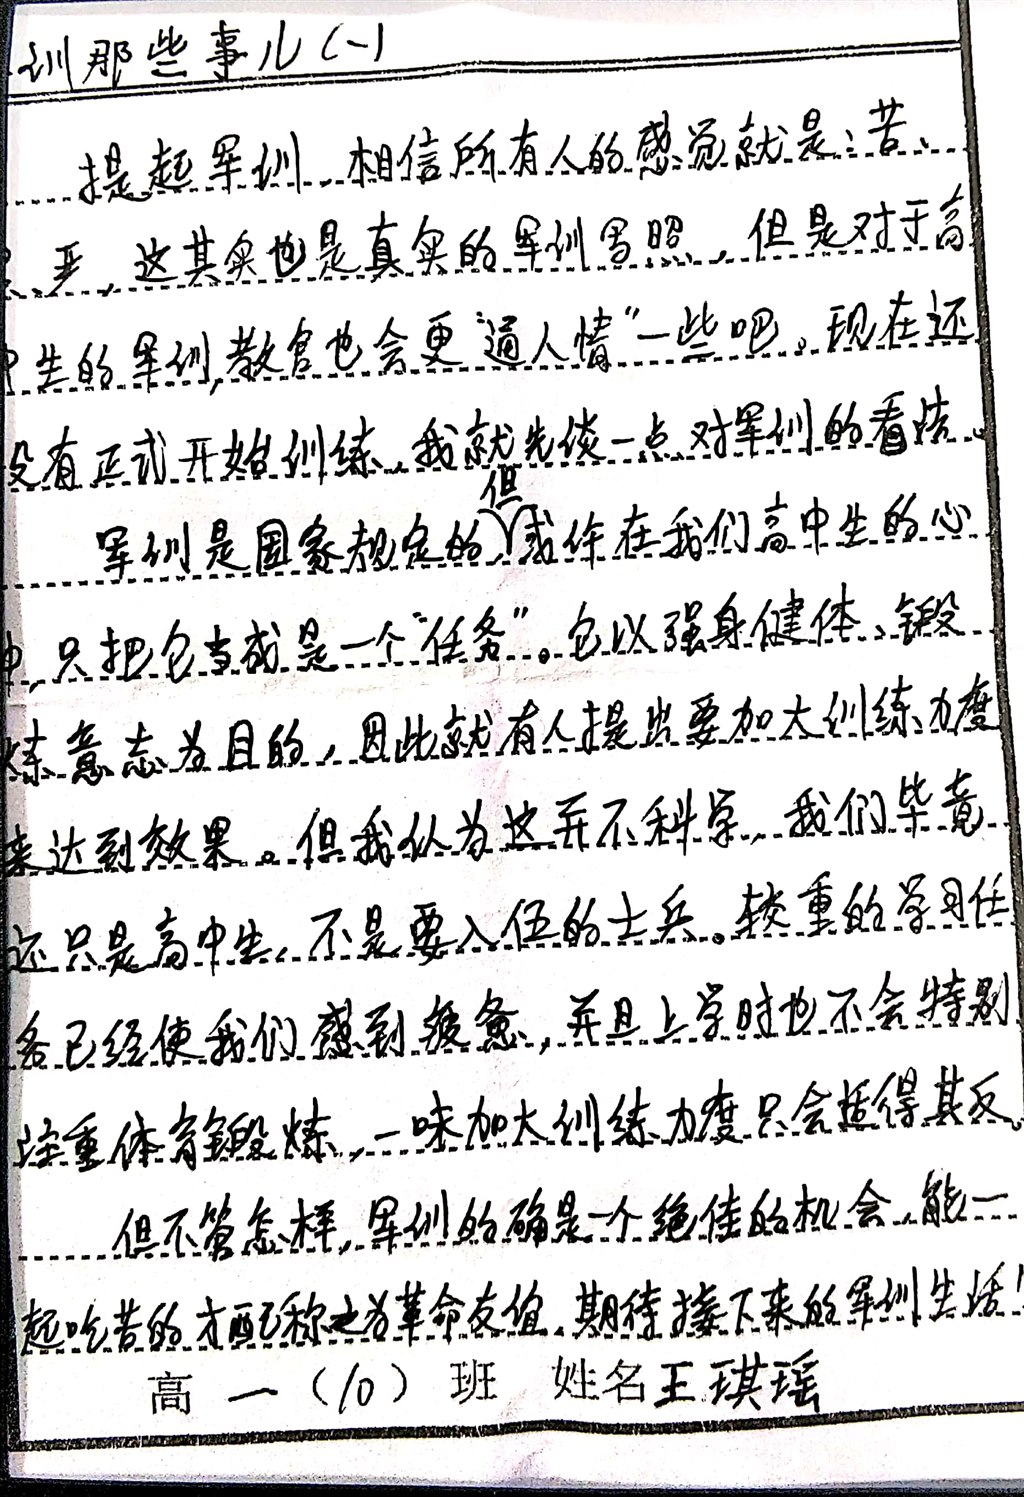 训那些事儿(一)
提起军训,相信所有人的感觉就是:苦、
、严,这其实也是真实的军训写照,但是对于高
中生的军训,教官也会更“通人情”一些吧。现在还
没有正式开始训练,我就先谈一点对军训的看法。
军训是国家规定的,但或许在我们高中生的心
中,只把它当成是一个“任务”。它以强身健体、锻
炼意志为目的,因此就有人提出要加大训练力度
来达到效果。但我认为这并不科学,我们毕竟
还只是高中生,不是要入伍的士兵。较重的学习任
务已经使我们感到疲惫,并且上学时也不会特别
注重体育锻炼,一味加大训练力度只会适得其反。
但不管怎样,军训的确是一个绝佳的机会,能一
起吃苦的才配称之为革命友谊,期待接下来的军训生活!
高一(10)班 姓名王琪瑶